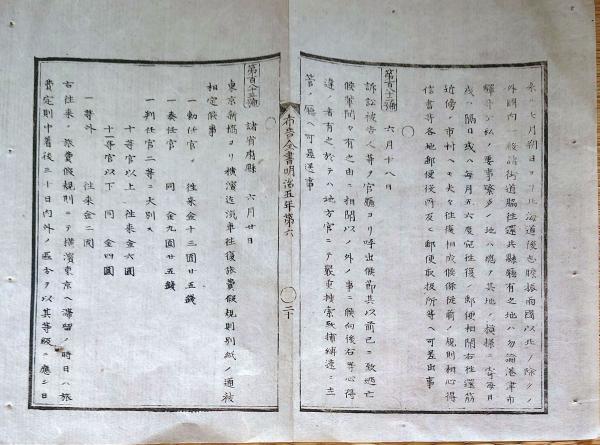 来ル七月朔日ヨリ北海道後志胆振両国以北ノ除クノ
外国内一般諸街道脇往還共県庁有之地ハ勿論港津市
駅等公私ノ要事繁多ノ地ハ應其地ノ模様ニ寄毎日
或ハ隔日或ハ毎月五六度宛往復ノ郵便相開右往還筋
近傍ノ市村ヘモ夫々往復相成候條従前ノ規則相心得
信書等各地郵便役所及ヒ郵便取扱所等ヘ可差出事
六月十八日
○
訴訟被告人等ヲ官廳ヨリ呼出候節其以前已ニ致逃亡
候輩間々有之由ニ相聞以ノ外ノ事ニ候向後右等心得
違ノ者有之於テハ地方官ニテ嚴重捜索致捕縛速ニ主
管ノ廳ヘ可差送事
布告全書明治五年第六
○
二十
○
諸省府縣 六月廿日
東京新橋ヨリ横濱迄汽車往復旅費假規則別紙ノ通被
相定候事
一勅任官 往来金十三圓廿五錢
一奏任官 同 金九圓廿五錢
一判任官二等ニ大別ス
十等官以上 往来金六圓
十一等官以下 同 金四圓
一等外 往来金二圓
右往来ノ旅費假規則ニテ横濱東京ヘ滞留ノ時日ハ旅
費定則中着後三十日内外ノ區分ヲ以其等級ニ應シ日